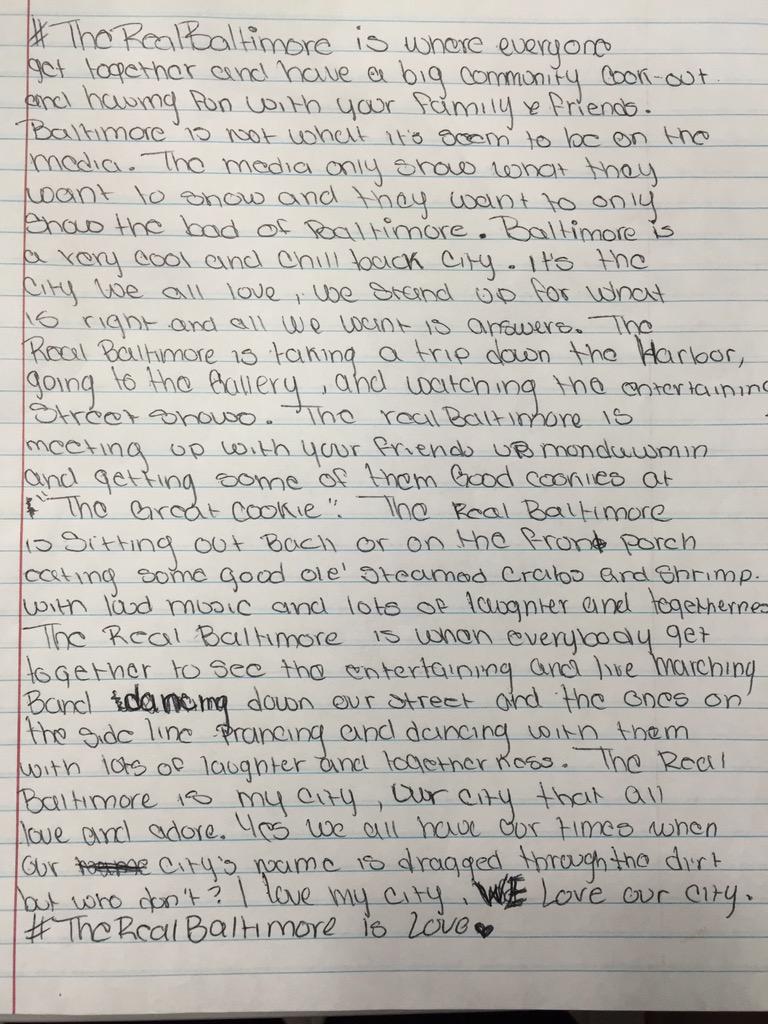 #TheRealBaltimore is where everyone
get together and have a big community cook-out
and having fon with your family & friends.
Baltimore is not what it's seem to be on the
media. The media only show what they
want to show and they want to only
show the bad of Baltimore. Baltimore is
a very cool and chill back city. It's the
city we all love, we stand up for what
is right and all we want is answers. The
Real Baltimore is taking a trip down the Harbor,
going to the Gallery, and watching the entertaining
street shows. The real Baltimore is
meeting up with your friends up mondawmin
and getting some of them Good cookies at
"The Great Cookie". The Real Baltimore
is Sitting out Back or on the front porch
eating some good ole' Steamed Crabs and Shrimp.
with loud music and lots of laughter and togetherness
The Real Baltimore is when everybody get
together to see the entertaining and live marching
Band dancing down our street and the ones on
the side line prancing and dancing with them
with lots of laughter and togetherness. The Real
Baltimore is my city, our city that all
love and adore. Yes we all have our times when
our city's name is dragged through the dirt
but who don't? I love my city, WE Love our city.
#TheRealBaltimore is love